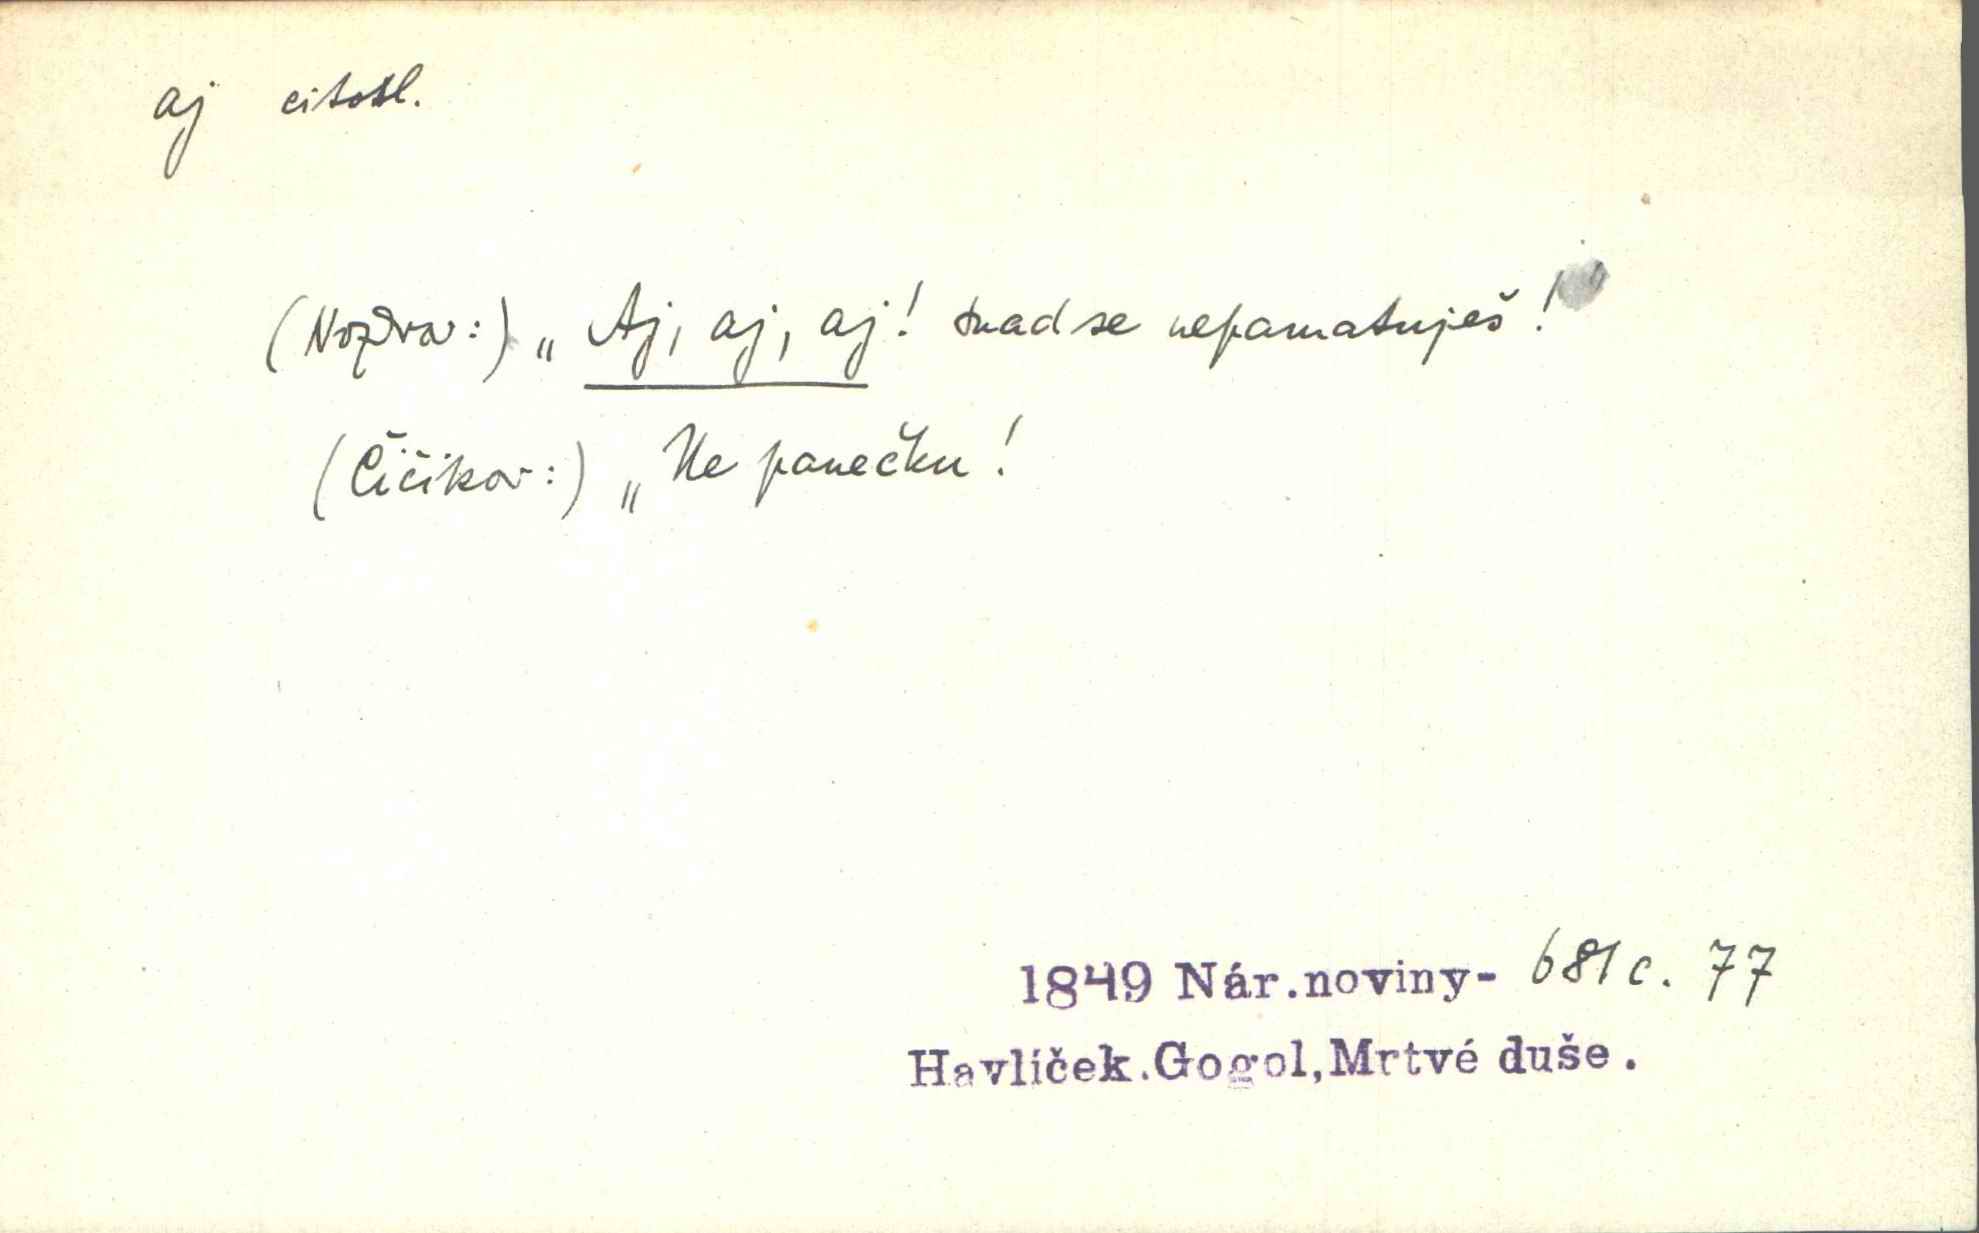 aj citosl.
(Nozdrev:) „Aj, aj, aj! snad se nepamatuješ!"
(Čičikov:) „Ne panečku!
1849 Nár.noviny- 681 c. 77
Havlíček.Gogol,Mrtvé duše.